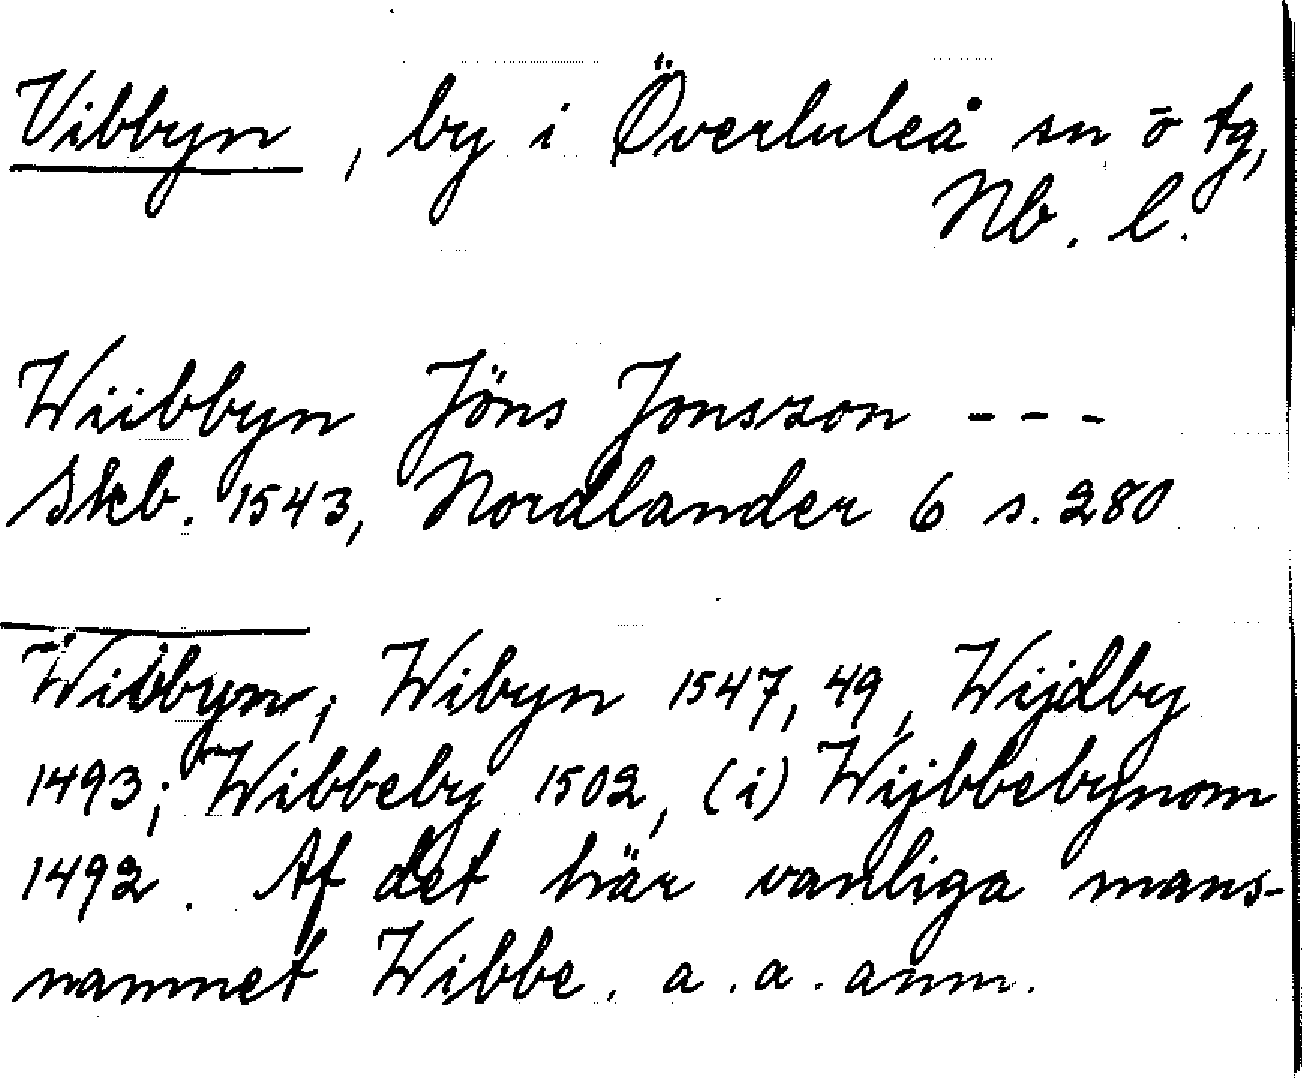 Vibbyn, by i Överluleå sn o tg,
Nb. l.
Wiibbyn Jöns Jonsson - - -
Skb. 1543, Nordlander 6 s. 280
Wibbyn, Wibyn 1547, 49, Wijdby
1493; Wibbeby 1502, (i) Wijbbebynom
1492. Af det här vanliga mans-
namnet Wibbe. a. a. anm.